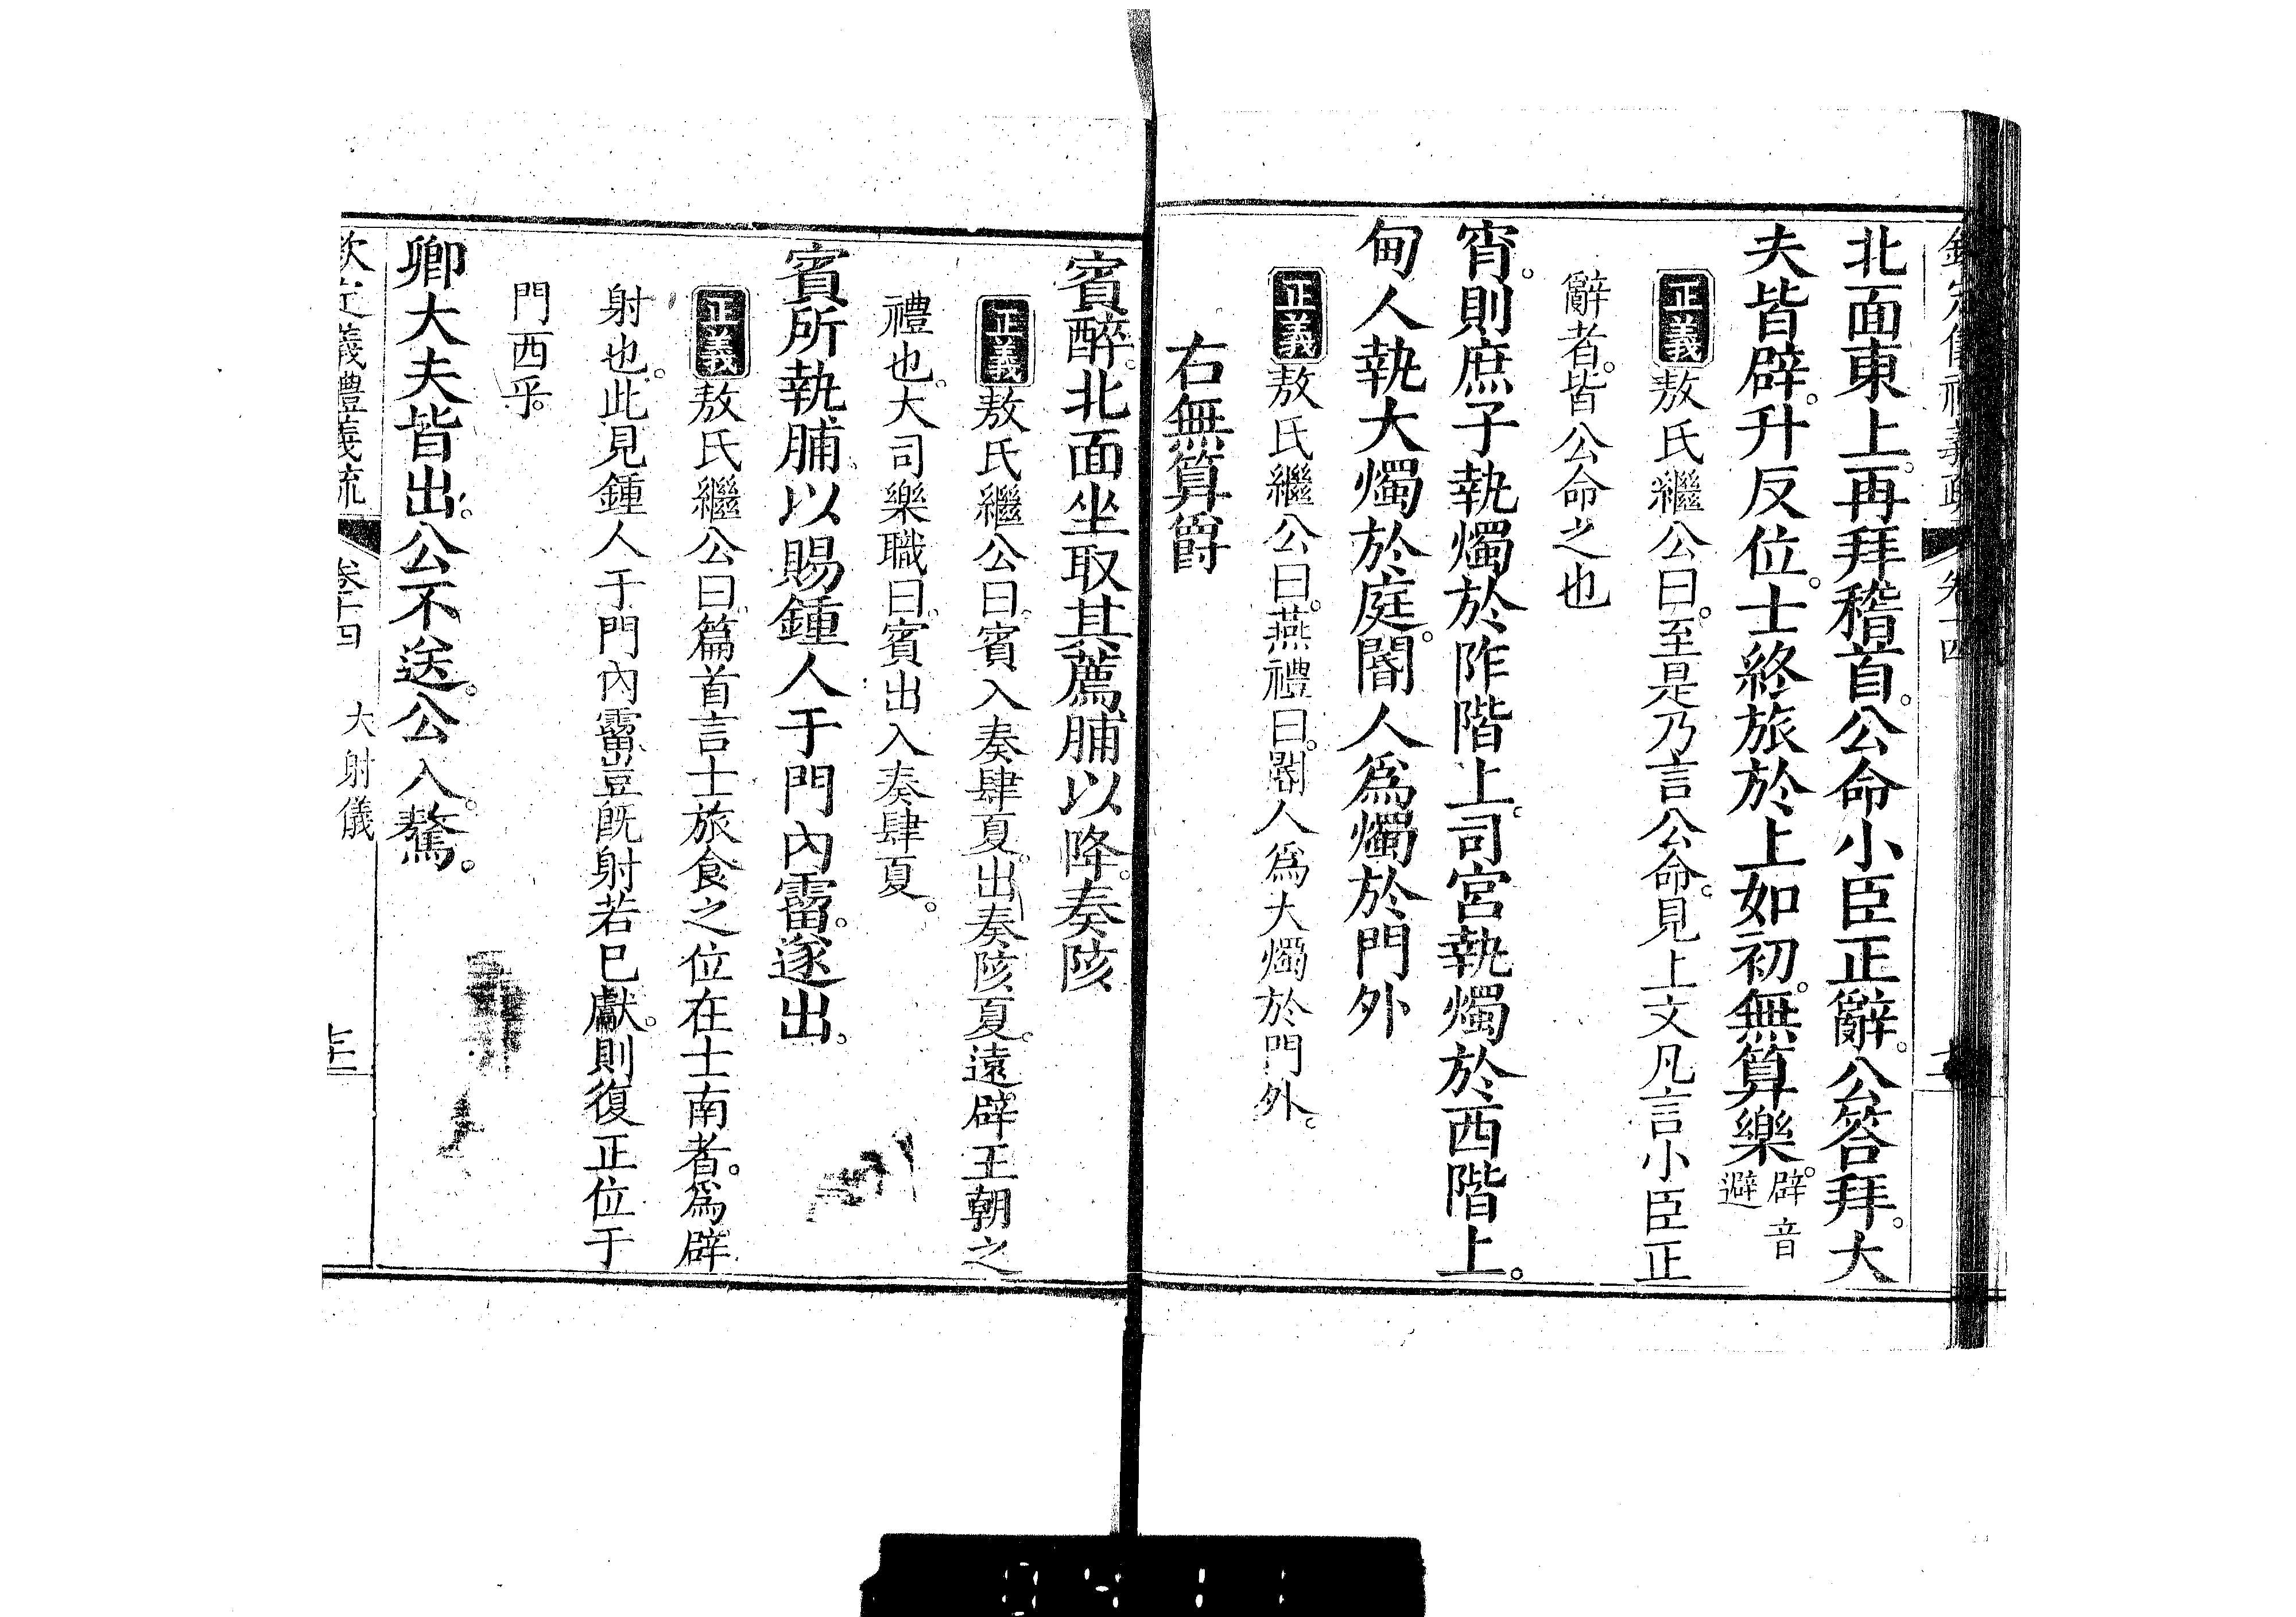 欽定儀禮義疏 卷十四
北面東上。再拜稽首。公命小臣正辭。公答拜。大
夫皆辟。升反位。士終旅於上如初。無算樂。辟音避
正義敖氏繼公曰。至是乃言公命。見上文凡言小臣正
辭者。皆公命之也
宵。則庶子執燭於阼階上。司宮執燭於西階上。
甸人執大燭於庭。閽人爲燭於門外
正義敖氏繼公曰。燕禮曰。閽人爲大燭於門外。
右無算爵
賓醉。北面坐取其薦脯以降。奏陔
正義敖氏繼公曰。賓入奏肆夏。出奏陔夏。遠辟王朝之
禮也。大司樂職曰。賓出入奏肆夏。
賓所執脯。以賜鍾人于門內霤。遂出。
正義敖氏繼公曰。篇首言士旅食之位在士南者。爲辟
射也。此見鍾人于門內霤。豈旣射若已獻。則復正位于
門西乎。
卿大夫皆出。公不送。公入。驁。
欽定義禮義疏 卷十四 大射儀